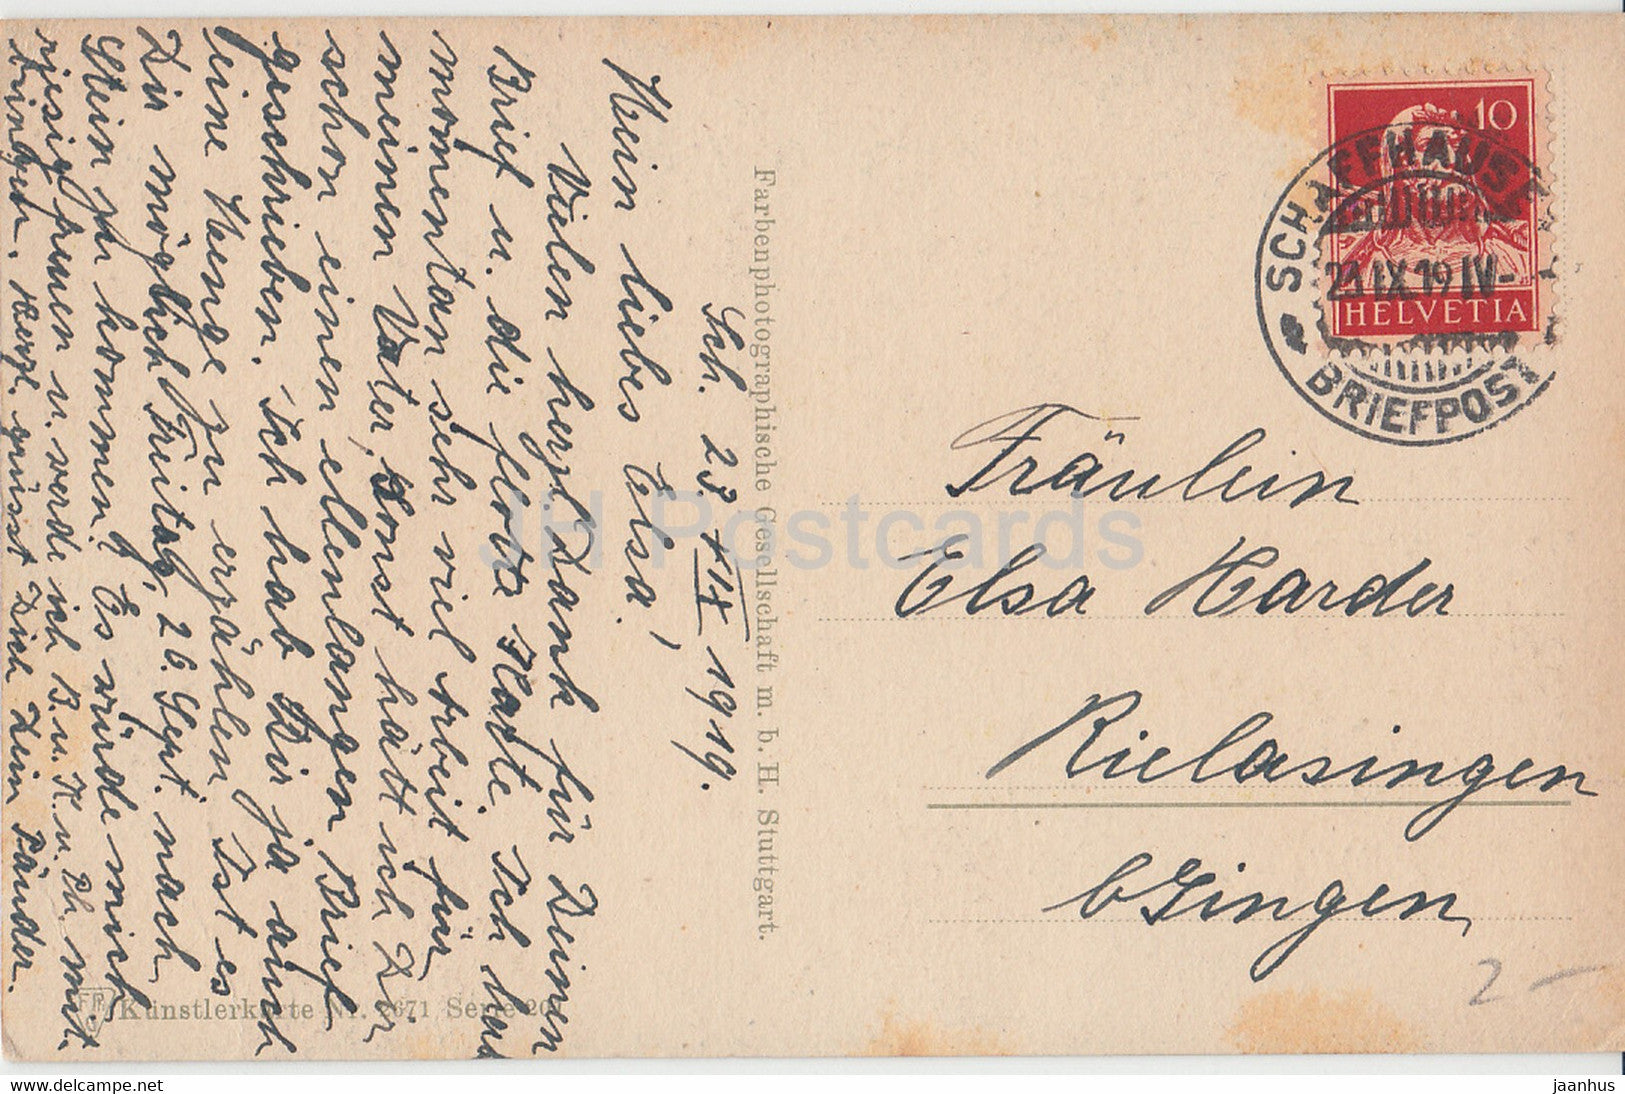 Sch. 23. IX 1919.
Mein liebes Elsa!
Vielen herzl. Dank für Deinen
Brief u. die flotte Karte. Ich hab
momentan sehr viel Arbeit für
meinen Vater, sonst hätt ich Dir
schon einen ellenlangen Brief
geschrieben. Ich hab Dir ja auch
eine Menge zu erzählen. Ist es
Dir möglich Freitag, 26. Sept. nach
Stein zu kommen? Es würde mich
riesig freuen u. werde ich B. u. K. u. Ph. mit
bringen. Herzl. grüsst Dich Dein
Farbenphotographische Gesellschaft m. b. H. Stuttgart.
Künstlerkarte Nr. 2671 Serie 201
10
HELVETIA
SCHAFFHAUSEN
23 IX 19 IV-
BRIEFPOST
Fräulein
Elsa Harder
Rielasingen
b Singen
2-
JH Postcards
delcampe.net
jaanhus